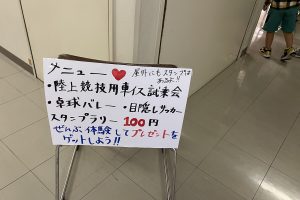 メニュー ♥ 屋外にもスタンプはあるよ!!
・陸上競技用車イス試乗会
・卓球バレー ・目隠しサッカー
スタンプラリー 100円
ぜんぶ体験してプレゼントを
ゲットしよう!!